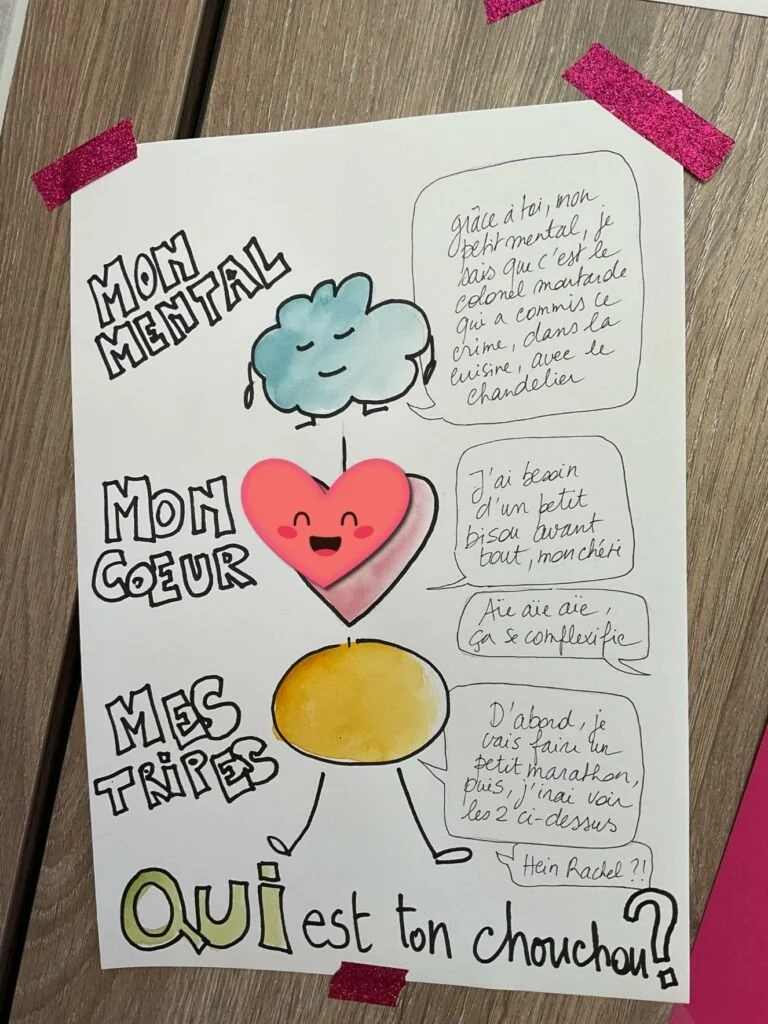 MON
MENTAL
grâce à toi, mon
petit mental, je
sais que c'est le
colonel moutarde
qui a commis ce
crime, dans la
cuisine, avec le
chandelier
MON
COEUR
J'ai besoin
d'un petit
bisou avant
tout, mon chéri
Aïe aïe aïe,
ça se complexifie
MES
TRIPES
D'abord, je
vais faire un
petit marathon,
puis, j'irai voir
les 2 ci-dessus
Hein Rachel ?!
QUI est ton chouchou ?